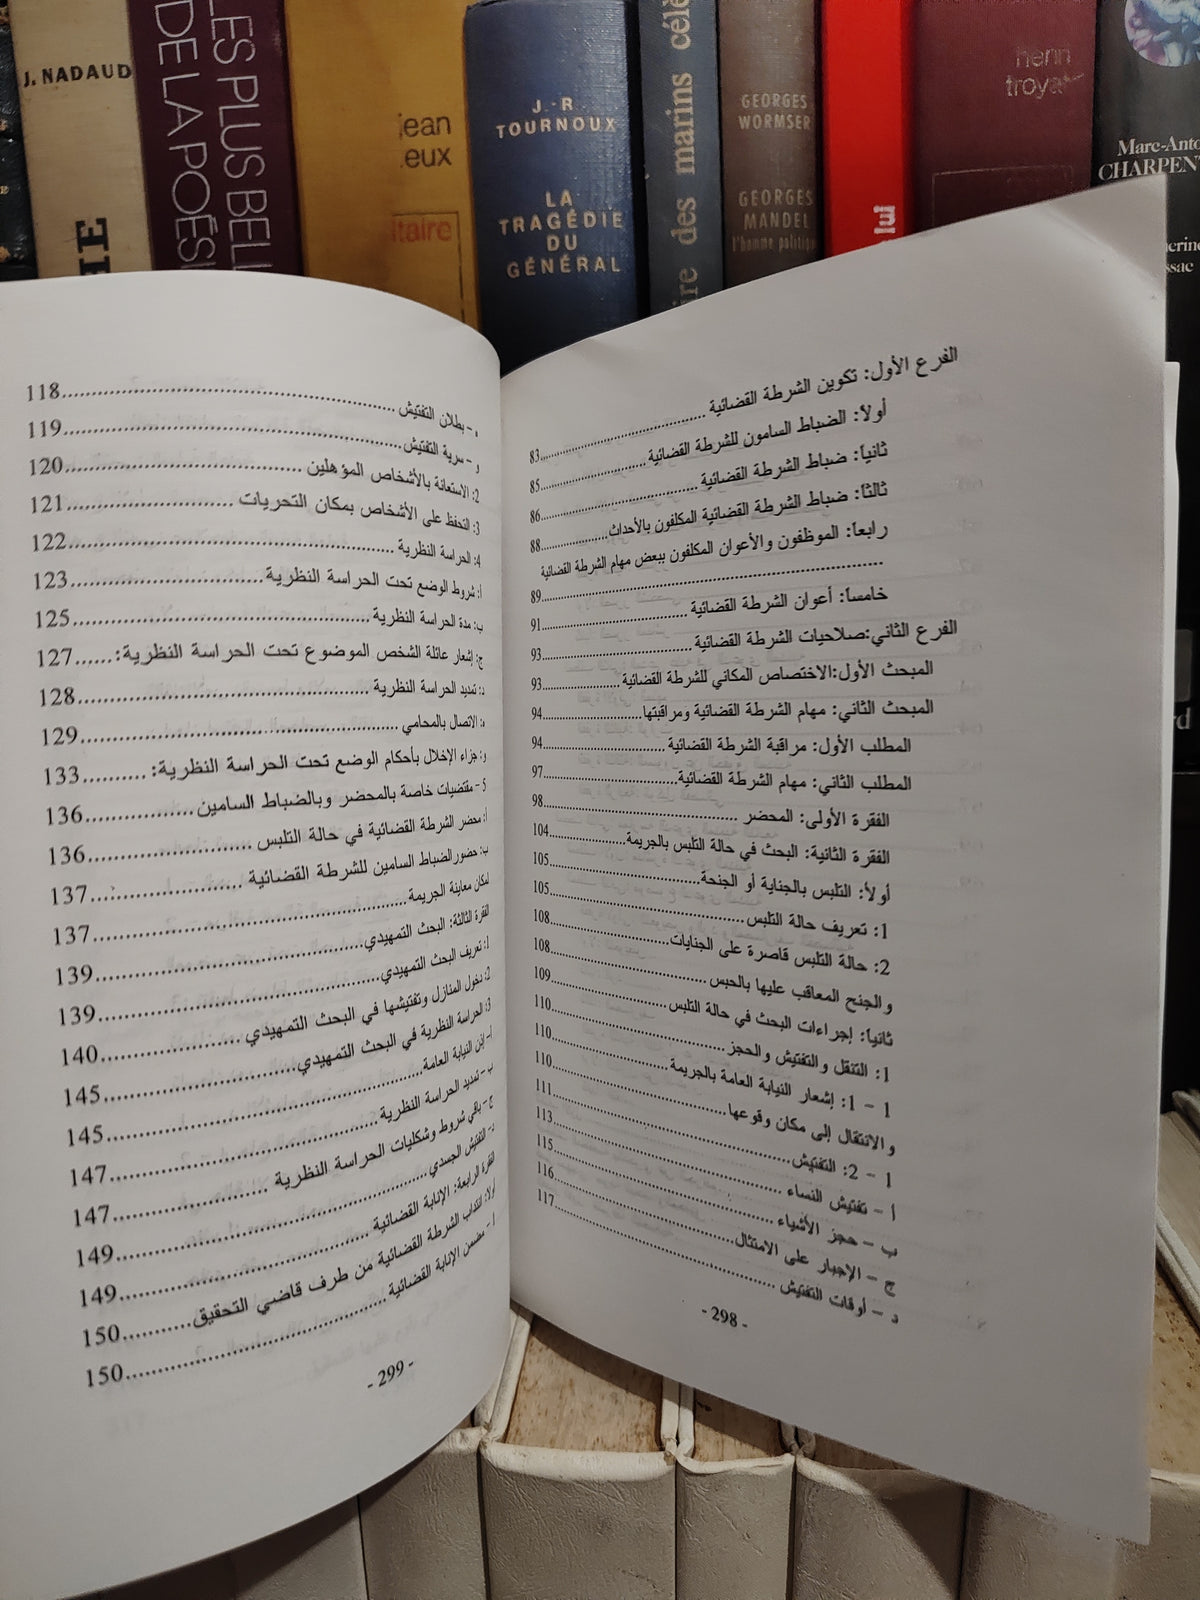 J. NADAUD
LES PLUS BELL
DE LA POÉSI
jean
eux
itaire
J.-R.
TOURNOUX
LA
TRAGÉDIE
DU
GÉNÉRAL
ire des marins célè
GEORGES
WORMSER
GEORGES
MANDEL
l'homme politiqu
henri
troya
Marc-Anto
CHARPEN
الفرع الأول: تكوين الشرطة القضائية ..........83
أولاً: الضباط السامون للشرطة القضائية ..........85
ثانياً: ضباط الشرطة القضائية ..........86
ثالثاً: ضباط الشرطة القضائية المكلفون بالأحداث ..........88
رابعاً: الموظفون والأعوان المكلفون ببعض مهام الشرطة القضائية
..........89
خامساً: أعوان الشرطة القضائية ..........91
الفرع الثاني:صلاحيات الشرطة القضائية ..........93
المبحث الأول:الاختصاص المكاني للشرطة القضائية ..........93
المبحث الثاني: مهام الشرطة القضائية ومراقبتها ..........94
المطلب الأول: مراقبة الشرطة القضائية ..........94
المطلب الثاني: مهام الشرطة القضائية ..........97
الفقرة الأولى: المحضر ..........98
الفقرة الثانية: البحث في حالة التلبس بالجريمة ..........104
أولاً: التلبس بالجناية أو الجنحة ..........105
1: تعريف حالة التلبس ..........105
2: حالة التلبس قاصرة على الجنايات ..........108
والجنح المعاقب عليها بالحبس ..........108
ثانياً: إجراءات البحث في حالة التلبس ..........109
1: التنقل والتفتيش والحجز ..........110
1 - 1: إشعار النيابة العامة بالجريمة ..........110
والانتقال إلى مكان وقوعها ..........110
1 - 2: التفتيش ..........111
أ - تفتيش النساء ..........113
ب - حجز الأشياء ..........115
ج - الإجبار على الامتثال ..........116
د - أوقات التفتيش ..........117
- 298 -
ه - بطلان التفتيش ..........118
و - سرية التفتيش ..........119
2: الاستعانة بالأشخاص المؤهلين ..........120
3: التحفظ على الأشخاص بمكان التحريات ..........121
4: الحراسة النظرية ..........122
أ: شروط الوضع تحت الحراسة النظرية ..........123
ب: مدة الحراسة النظرية ..........125
ج: إشعار عائلة الشخص الموضوع تحت الحراسة النظرية: ......127
د: تمديد الحراسة النظرية ..........128
ه: الاتصال بالمحامي ..........129
و: جزاء الإخلال بأحكام الوضع تحت الحراسة النظرية: ..........133
5 - مقتضيات خاصة بالمحضر وبالضباط السامين ..........136
أ: محضر الشرطة القضائية في حالة التلبس ..........136
ب: حضور الضباط السامين للشرطة القضائية ..........137
لمكان معاينة الجريمة ..........137
الفقرة الثالثة: البحث التمهيدي ..........139
1: تعريف البحث التمهيدي ..........139
2: دخول المنازل وتفتيشها في البحث التمهيدي ..........140
3: الحراسة النظرية في البحث التمهيدي ..........145
أ- إذن النيابة العامة ..........145
ب - تمديد الحراسة النظرية ..........147
ج - باقي شروط وشكليات الحراسة النظرية ..........147
د - التفتيش الجسدي ..........149
الفقرة الرابعة: الإنابة القضائية ..........149
أولا: انتداب الشرطة القضائية من طرف قاضي التحقيق ..........150
أ - مضمن الإنابة القضائية ..........150
- 299 -